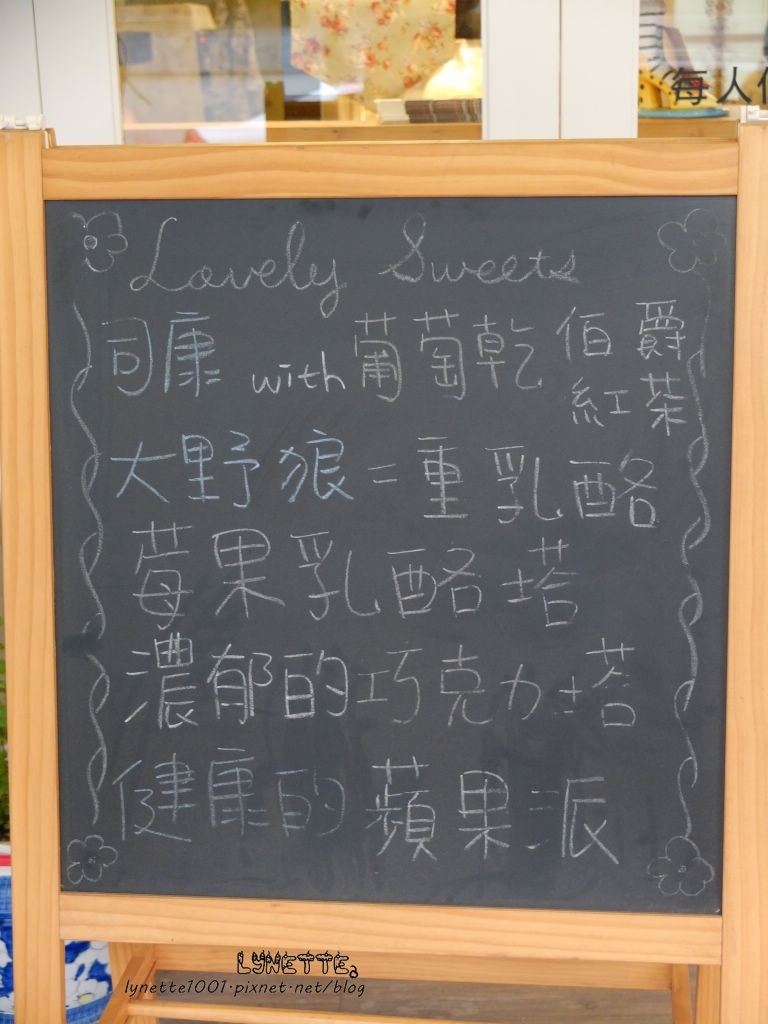 每人
Lovely Sweets
司康 with 葡萄乾 伯爵
紅茶
大野狼=重乳酪
莓果乳酪塔
濃郁的巧克力塔
健康的蘋果派
LYNETTE。
lynette1001.pixnet.net/blog